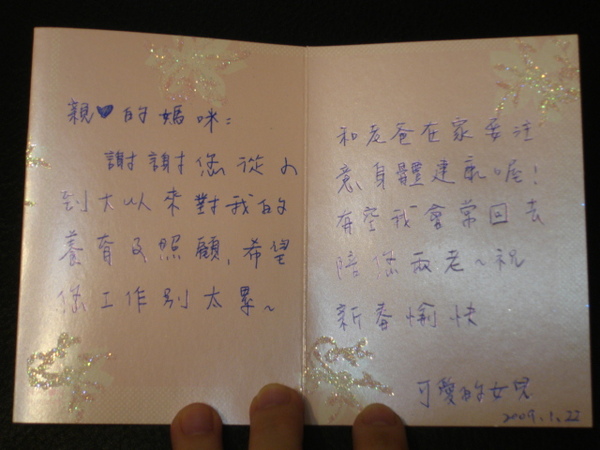 親♥的媽咪：
謝謝您從小
到大以來對我的
養育及照顧，希望
您工作別太累～
和老爸在家要注
意身體健康喔！
有空我會常回去
陪您兩老～祝
新春愉快
可愛的女兒
2009.1.22